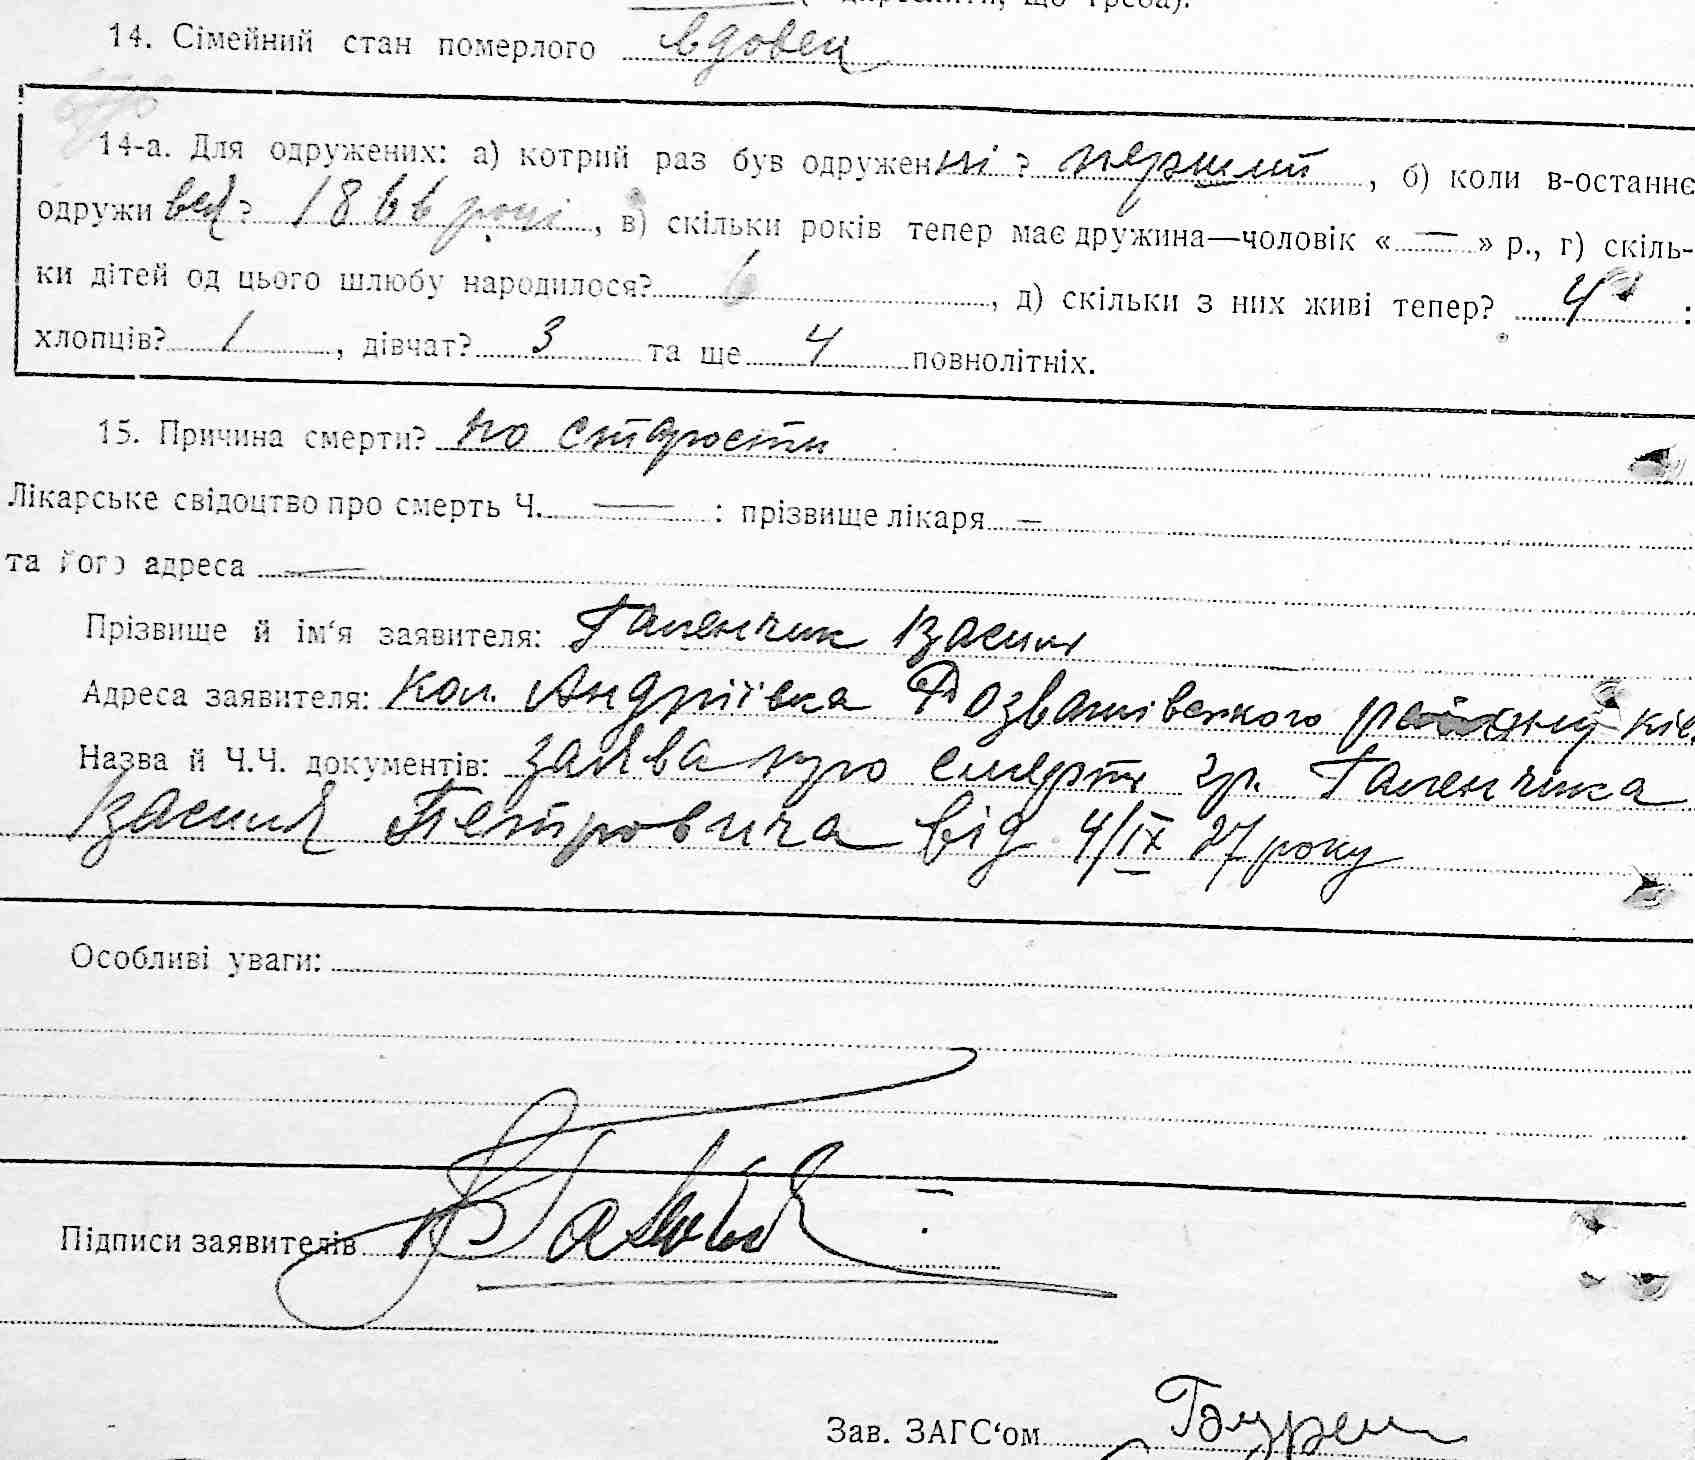 підкреслити, що треба).
14. Сімейний стан померлого вдовец
14-а. Для одружених: а) котрий раз був одруженні ? перший, б) коли в-останнє
одруживсь? 1866 році, в) скільки років тепер має дружина—чоловік «—» р., г) скіль-
ки дітей од цього шлюбу народилося? 6, д) скільки з них живі тепер? 4 :
хлопців? 1, дівчат? 3 та ще 4 повнолітніх.
15. Причина смерти? по старости
Лікарське свідоцтво про смерть Ч. — : прізвище лікаря —
та його адреса —
Прізвище й ім'я заявителя: Галенчик Василь
Адреса заявителя: Кол. Андріївка Розважівського району Київ.
Назва й Ч.Ч. документів: заява про смерть гр. Галенчика
Василя Петровича від 4/IX 27 року
Особливі уваги:
Підписи заявителів
Зав. ЗАГС'ом